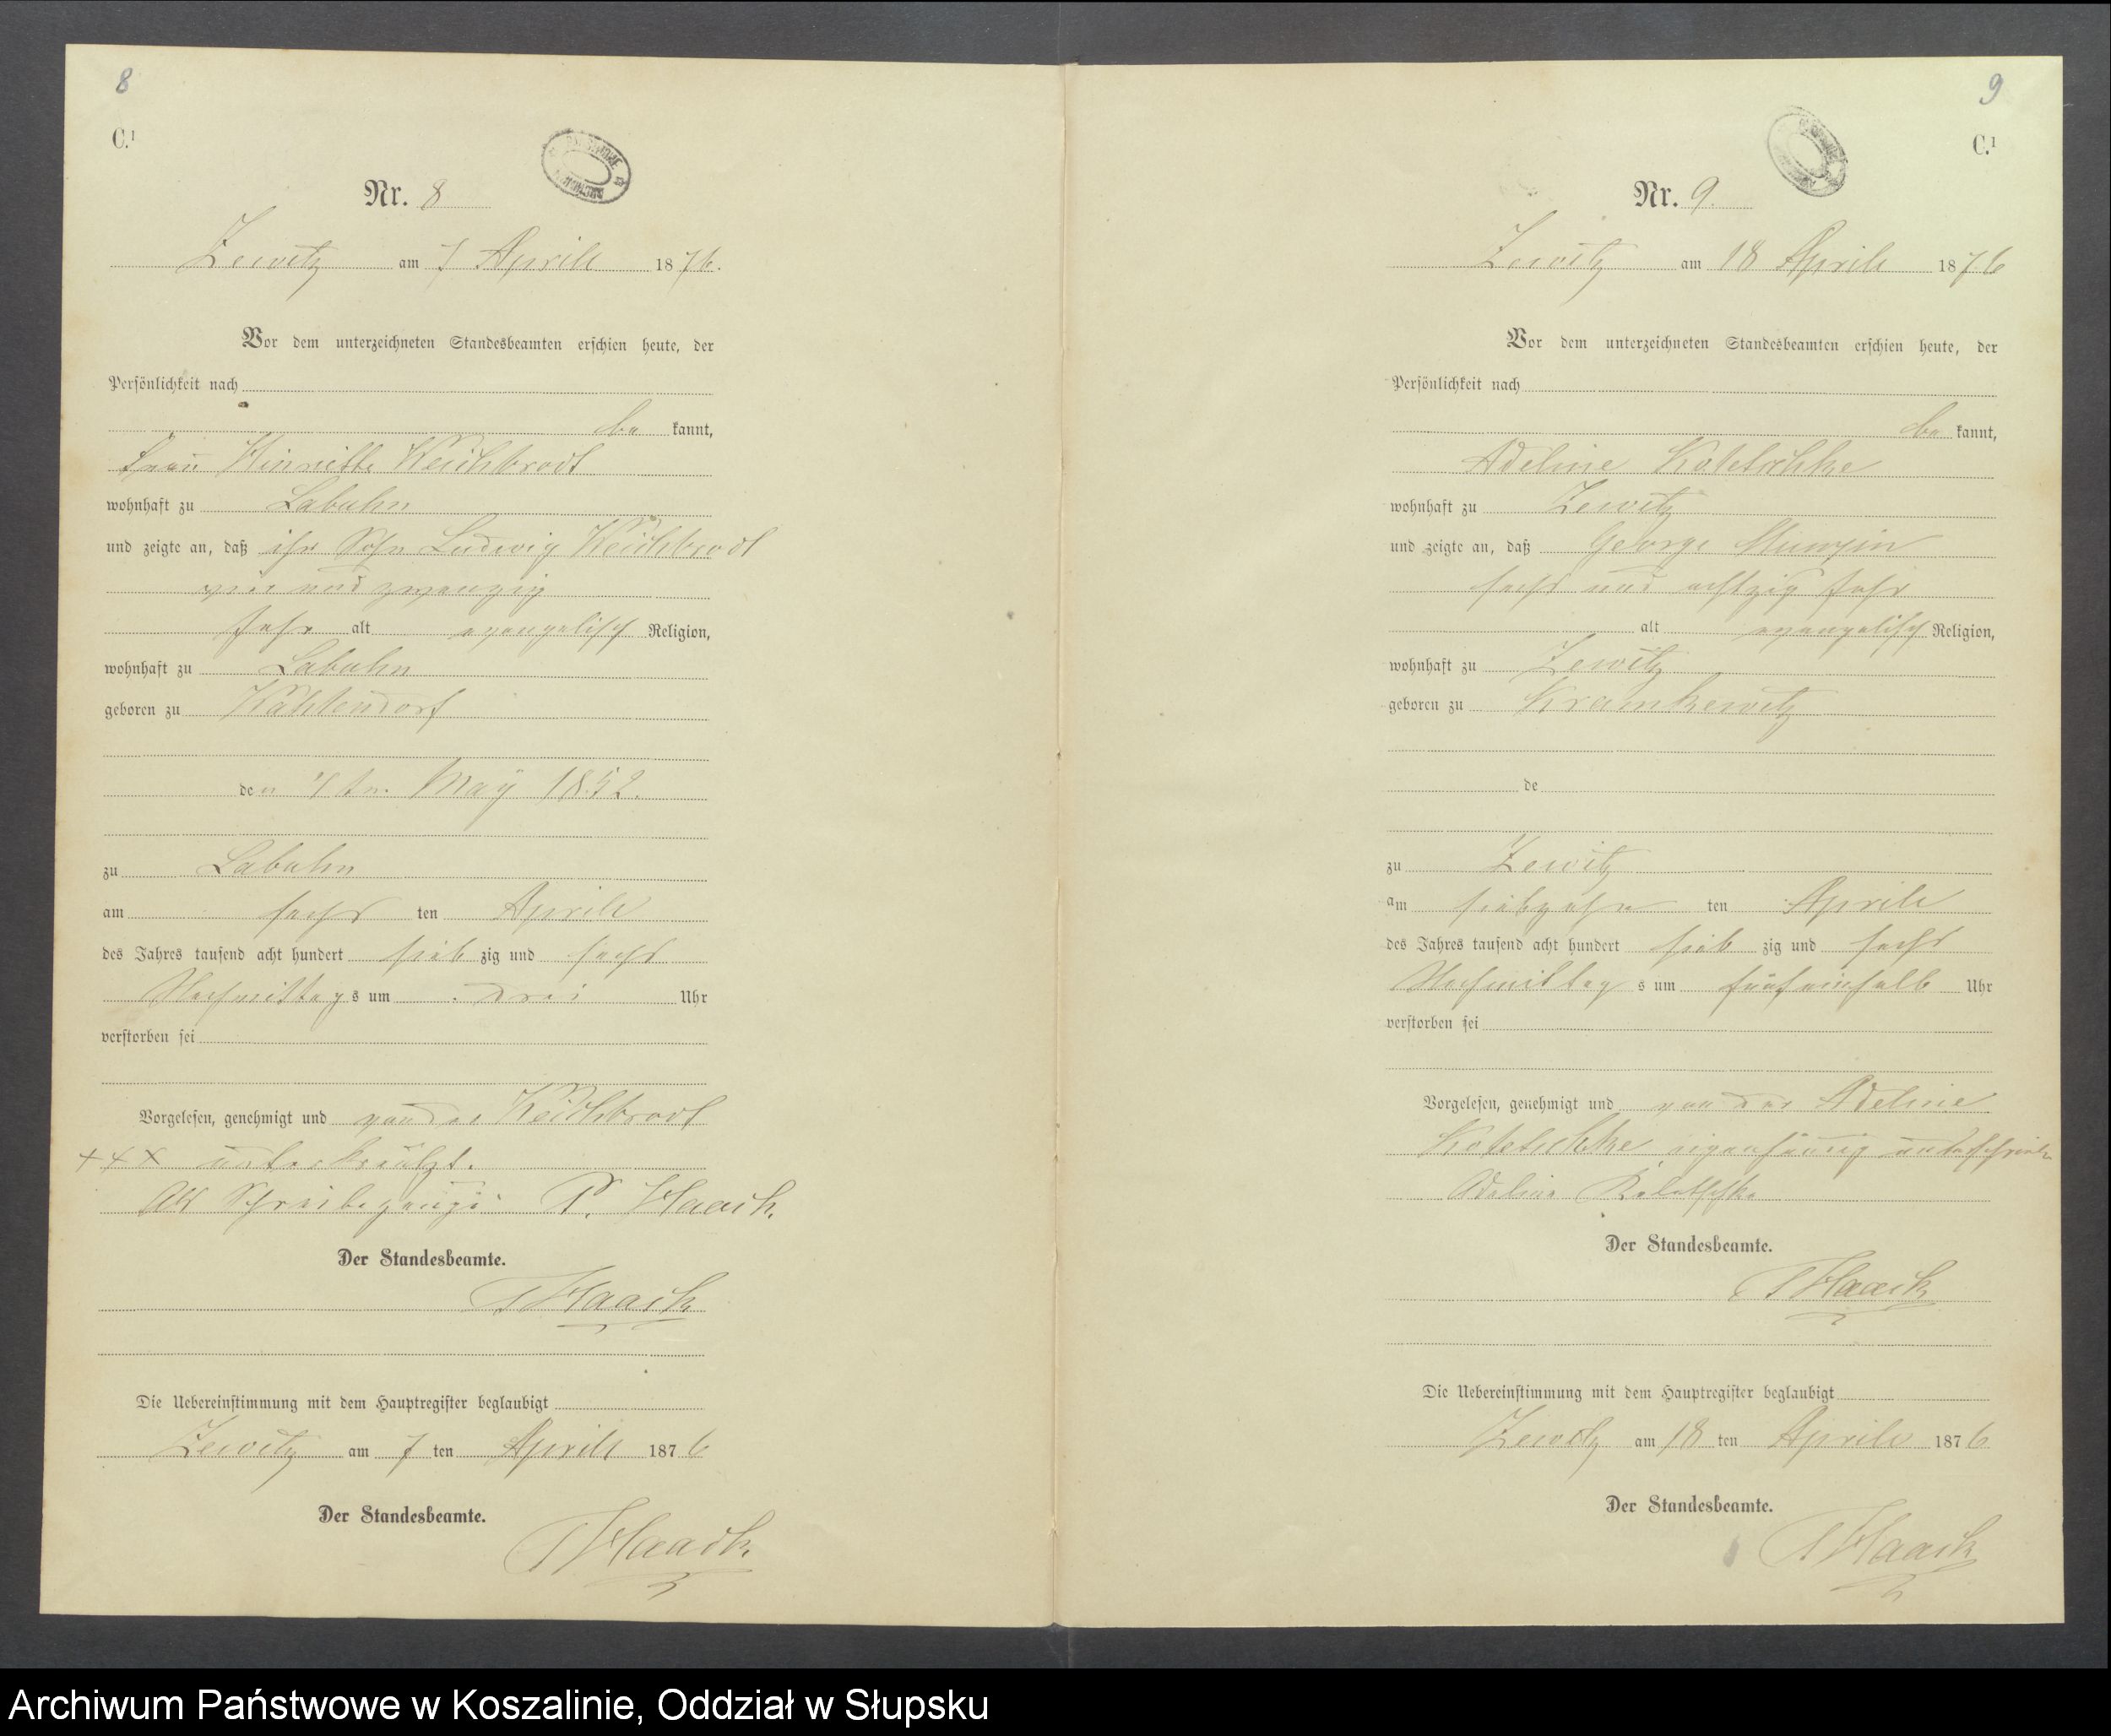 8
C.¹
Nr. 8
Zewitz am 7 Aprill 1876.
Vor dem unterzeichneten Standesbeamten erschien heute, der
Persönlichkeit nach
be kannt,
Frau Hinriette Reichbrodt
wohnhaft zu Labuhn
und zeigte an, daß ihr Sohn Ludwig Reichbrodt
vier und zwanzig
Jahr alt evangelisch Religion,
wohnhaft zu Labuhn
geboren zu
den May 1852.
zu Labuhn
am sechs ten Aprill
des Jahres tausend acht hundert sieb zig und sechs
Nachmittags um drei Uhr
verstorben sei
Vorgelesen, genehmigt und von der Reichbrodt
+++ unterkreutzt.
Als Schreibezeuge P. Haack.
Der Standesbeamte.
Haack
Die Uebereinstimmung mit dem Hauptregister beglaubigt
Zewitz am 7 ten Aprill 1876
Der Standesbeamte.
Haack.
9
C.¹
Nr. 9.
Zewitz am 18 Aprill 1876
Vor dem unterzeichneten Standesbeamten erschien heute, der
Persönlichkeit nach
be kannt,
Adeline Koletschke
wohnhaft zu Zewitz
und zeigte an, daß George
sechs und achtzig Jahr
alt evangelisch Religion,
wohnhaft zu Zewitz
geboren zu Kramkewitz
de
zu Zewitz
am siebzehn ten Aprill
des Jahres tausend acht hundert sieb zig und sechs
Nachmittag s um fünfeinhalb Uhr
verstorben sei
Vorgelesen, genehmigt und von der Adeline
Koletschke eigenhändig unterschrieben
Adeline Koletschke
Der Standesbeamte.
Haack
Die Uebereinstimmung mit dem Hauptregister beglaubigt
Zewitz am 18 ten Aprill 1876
Der Standesbeamte.
Haack
Archiwum Państwowe w Koszalinie, Oddział w Słupsku